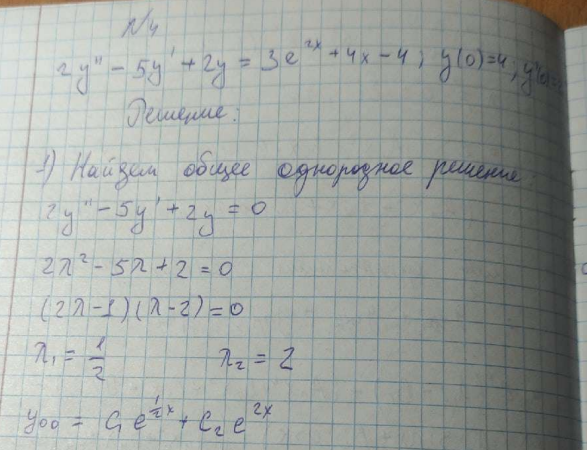 №4
2y'' - 5y' + 2y = 3e^{2x} + 4x - 4; y(0) = 4; y'(0) =
Решение:
1) Найдем общее однородное решение:
2y'' - 5y' + 2y = 0
2λ² - 5λ + 2 = 0
(2λ - 1)(λ - 2) = 0
λ₁ = 1/2 λ₂ = 2
y₀₀ = C₁e^{1/2 x} + C₂e^{2x}